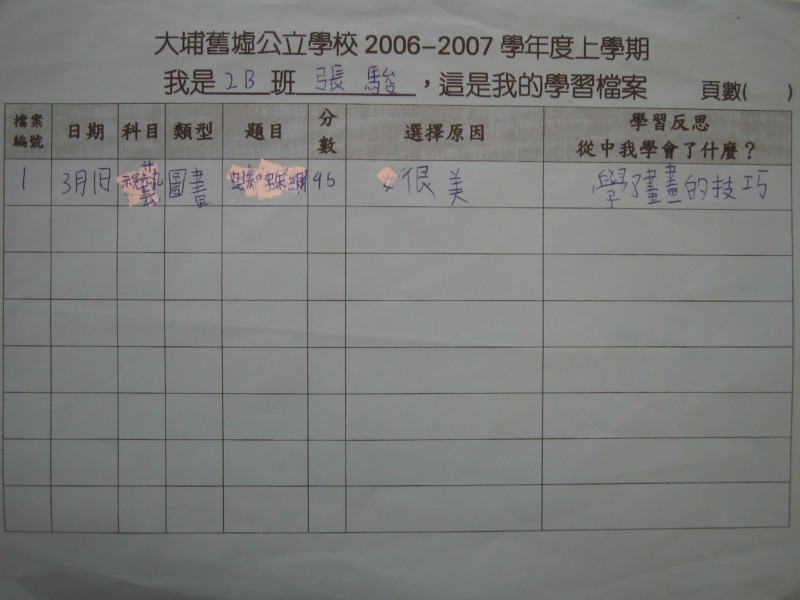 大埔舊墟公立學校 2006-2007 學年度上學期
我是 2B 班 張駿 ，這是我的學習檔案 頁數( )
檔案編號 日期 科目 類型 題目 分數 選擇原因 學習反思
從中我學會了什麼？
1 3月1日 視藝 圖畫 蜘蛛網 95 很美 學了畫畫的技巧